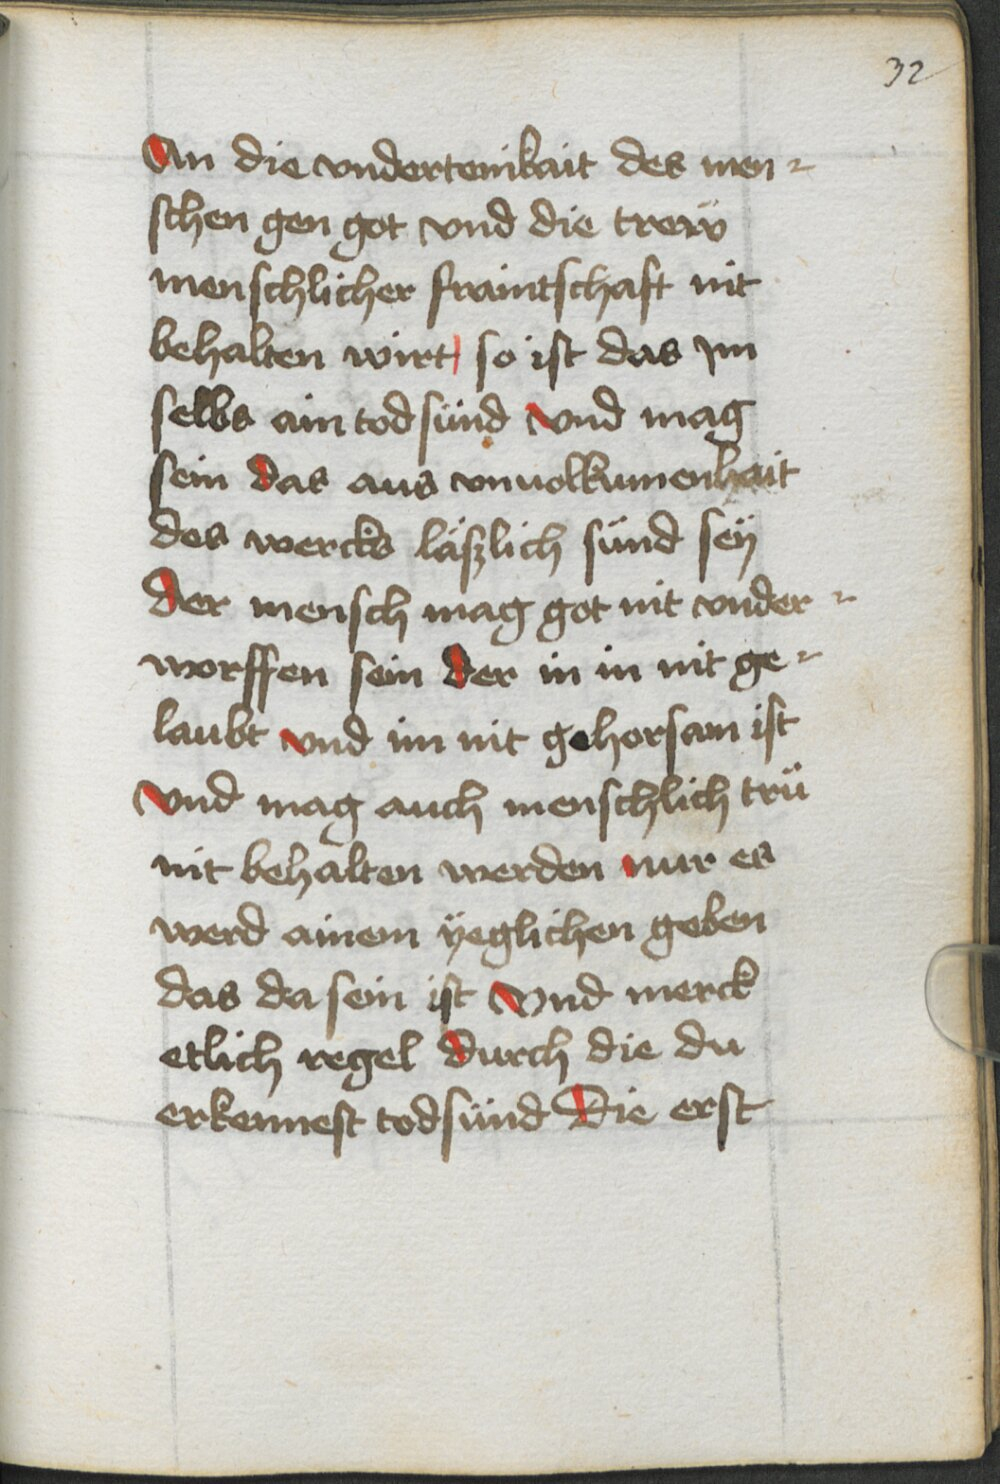 32
An die vndertenikait des men-
schen gen got vnd die trew
menschlicher fraintschaft nit
behalten wirt so ist das Im
selbs ain tod sünd Vnd mag
sein das aus vnuolkumenhait
des wercks läszlich sünd seÿ
der mensch mag got nit vnder-
worffen sein der in in nit ge-
laubt vnd im nit gehorsam ist
Vnd mag auch menschlich trü
nit behalten werden nur es
werd ainem ÿeglichen geben
das da sein ist Vnd merck
etlich regel durch die du
erkennest tod sünd Die erst